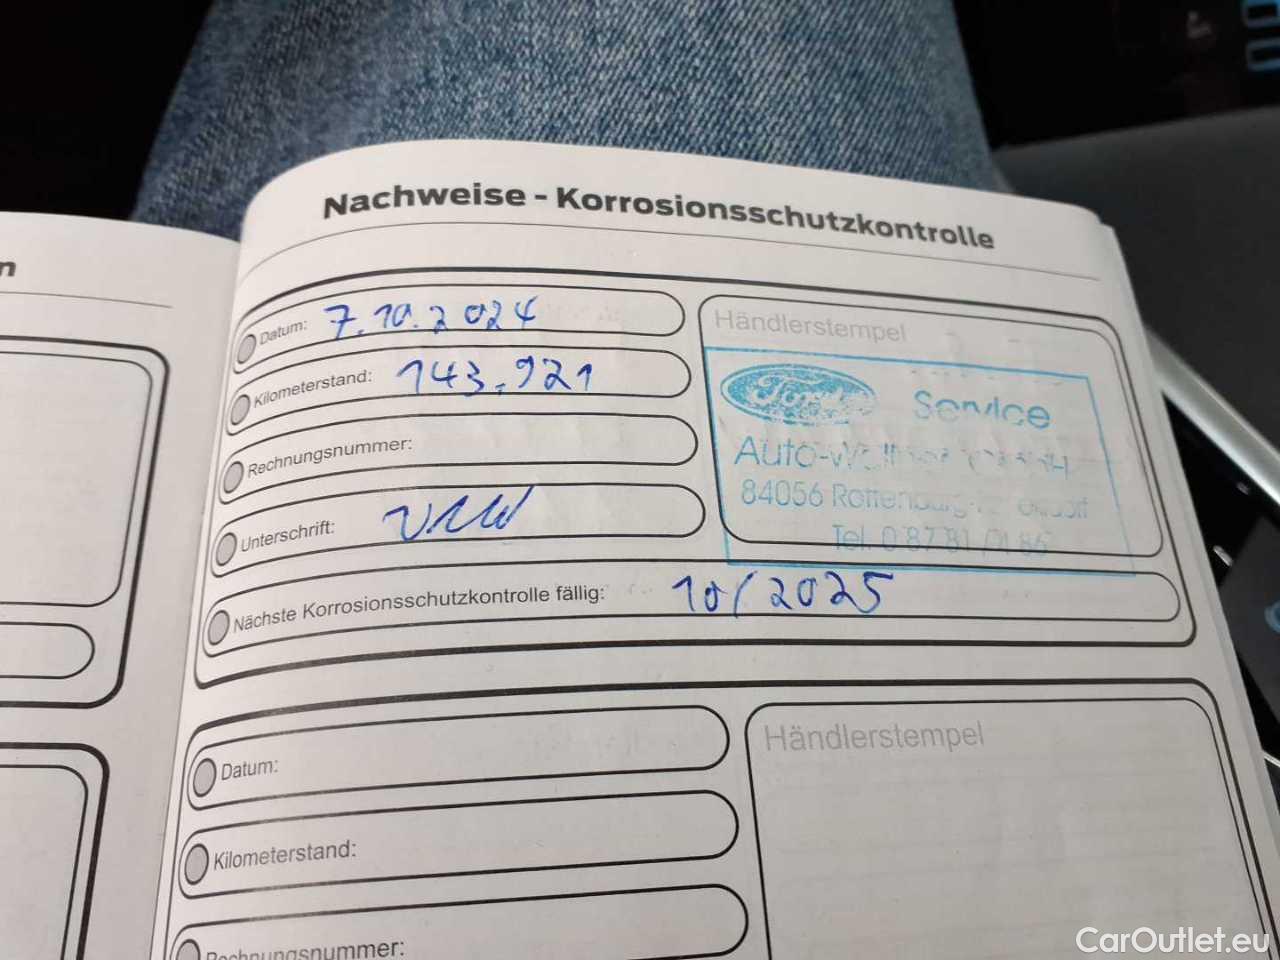 n
Nachweise - Korrosionsschutzkontrolle
Datum: 7.10.2024
Kilometerstand: 143.921
Rechnungsnummer:
Unterschrift:
Nächste Korrosionsschutzkontrolle fällig: 10/2025
Händlerstempel
Ford Service
84056
Tel.
Datum:
Kilometerstand:
Rechnungsnummer:
Händlerstempel
CarOutlet.eu